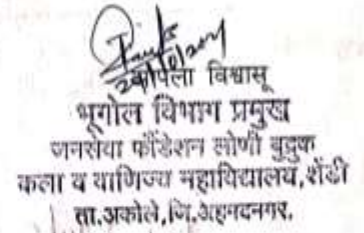 आपला विश्वासू
भूगोल विभाग प्रमुख
जनसेवा फौंडेशन लोणी बुद्रुक
कला व वाणिज्य महाविद्यालय, शेंडी
ता.अकोले,जि.अहमदनगर.